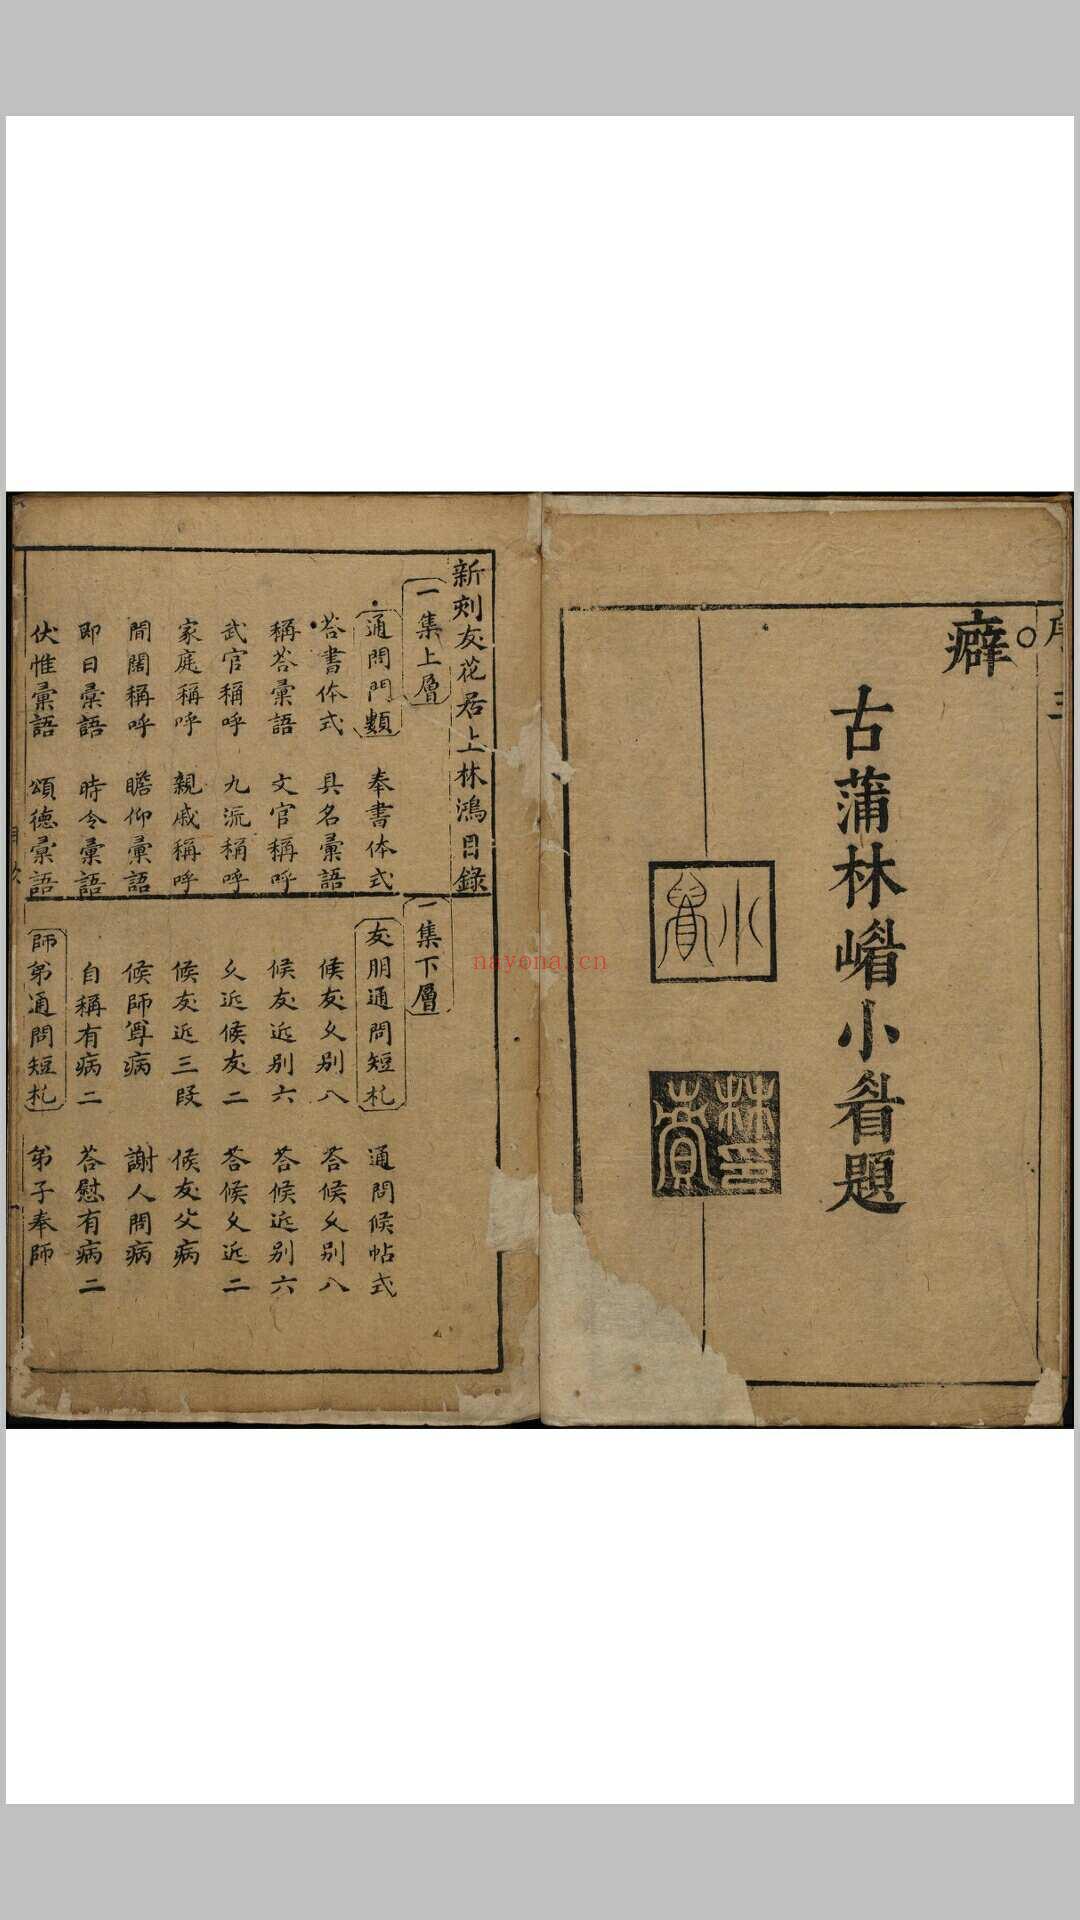 癖
古蒲林㟭小眉題
新刻友花居上林鴻目錄
一集上層
通問門類 奉書体式
荅書体式 具名彙語
稱荅彙語 文官稱呼
武官稱呼 九流稱呼
家庭稱呼 親戚稱呼
間闊稱呼 瞻仰彙語
即日彙語 時令彙語
伏惟彙語 頌德彙語
一集下層
友朋通問短札 通問候帖式
候友乆别八 荅候乆别八
候友近别六 荅候近别六
乆近候友二 荅候乆近二
候友近三段 候友父病
候師尊病 謝人問病
自稱有病二 荅慰有病二
師弟通問短札 弟子奉師
nayona.cn